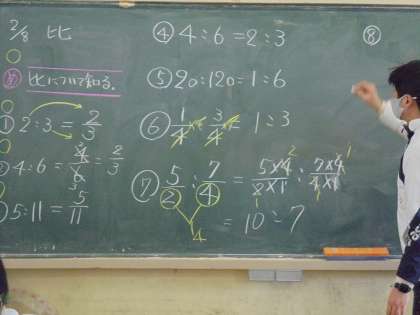 2/8 比
め 比について知る。
① 2:3 = 2/3
② 4:6 = 4/6 = 2/3
③ 5:11 = 5/11
④ 4:6 = 2:3
⑤ 20:120 = 1:6
⑥ 1/4 : 3/4 = 1:3
⑦ 5/2 : 7/4 = 5×4/2×1 : 7×4/4×1
4
= 10:7
⑧